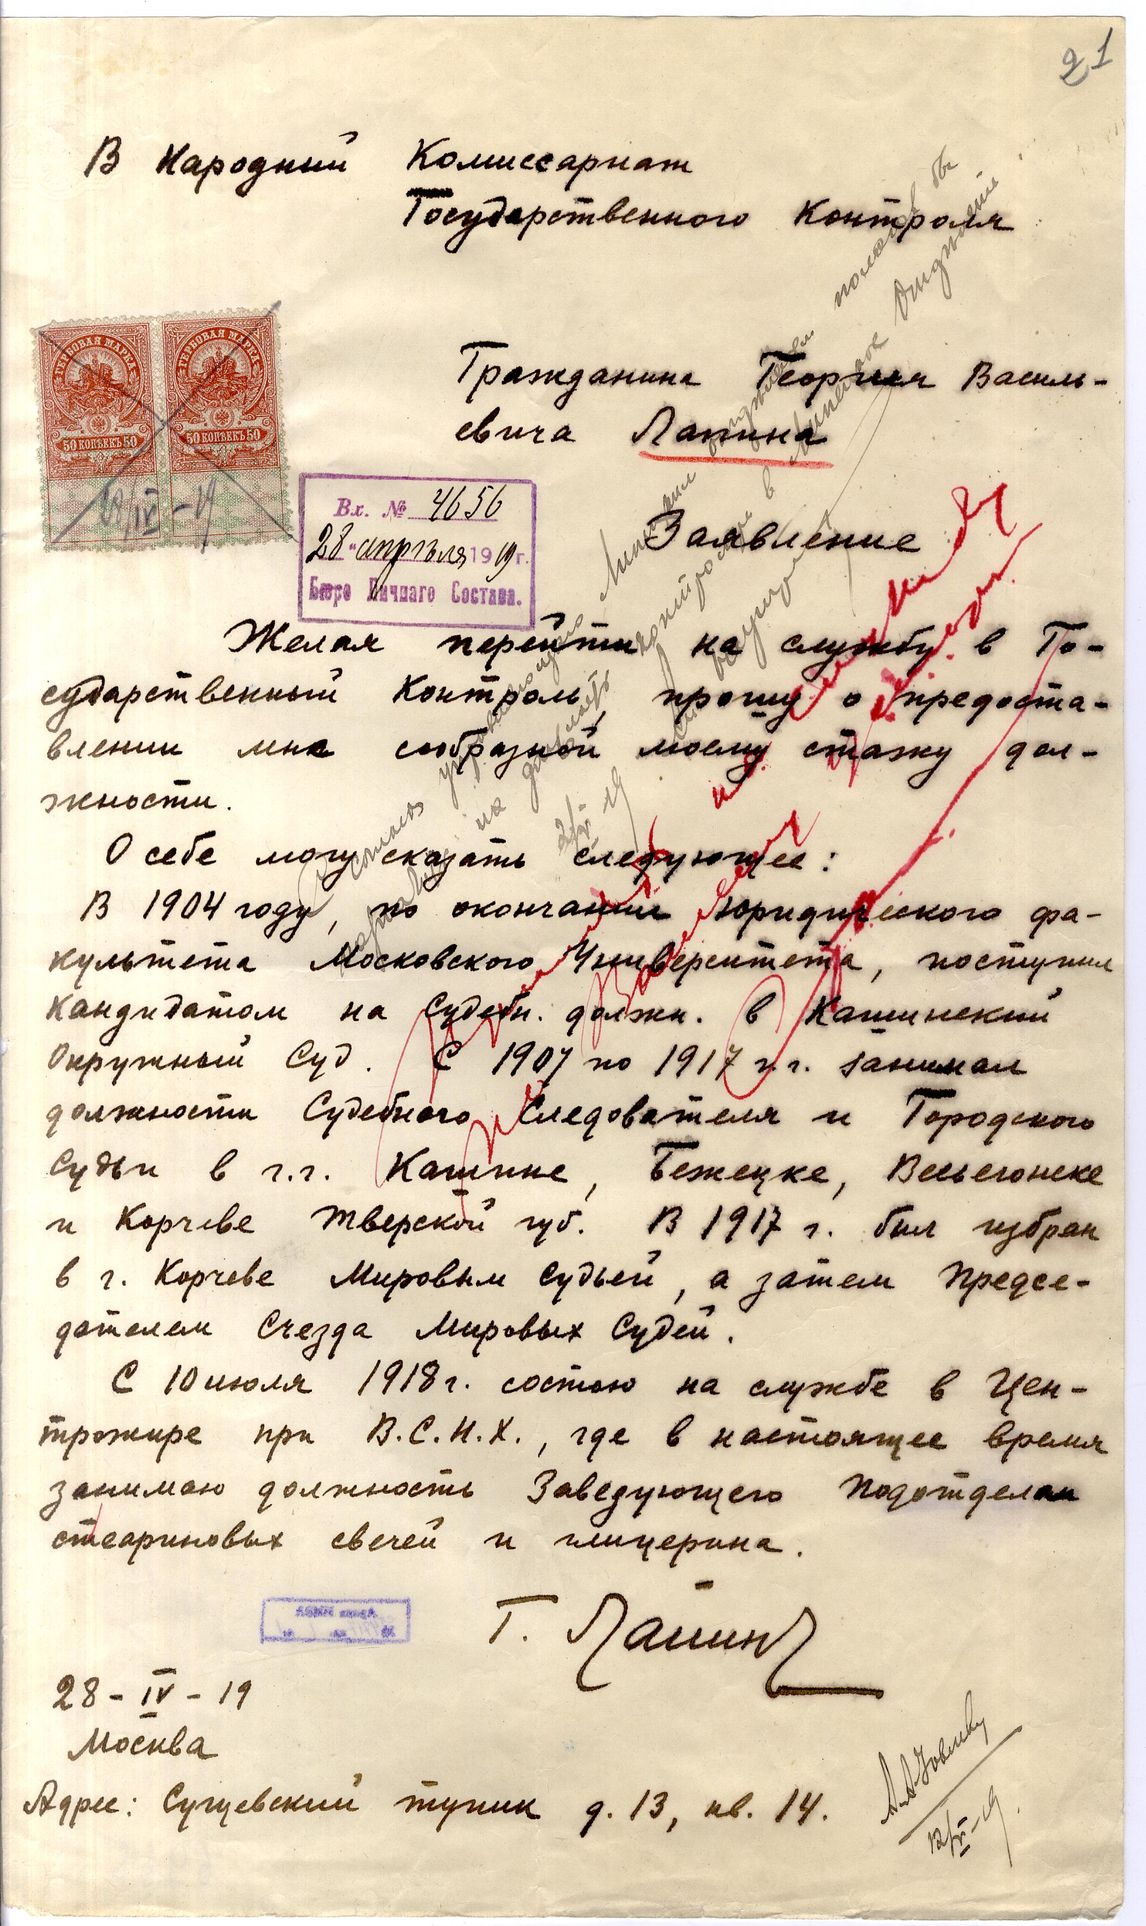 21
В Народный Комиссариат
Государственного Контроля
ГЕРБОВАЯ МАРКА
ГЕРБОВАЯ МАРКА
50 КОПѢЕКЪ 50
50 КОПѢЕКЪ 50
28/IV - 19
Гражданина Георгия Василь-
евича Лапина
Вх. № 4656
28 " апрѣля 1919 г.
Бюро Личнаго Состава.
Заявление
Желая перейти на службу в Го-
сударственный Контроль, прошу о предоста-
влении мне сообразной моему стажу дол-
жности.
О себе могу сказать следующее:
В 1904 году, по окончании Юридического фа-
культета Московского Университета, поступил
кандидатом на Судебн. должн. в Кашинский
Окружный Суд. С 1907 по 1917 г.г. занимал
должности Судебного Следователя и Городского
Судьи в г.г. Кашине, Бежецке, Весьегонске
и Корчеве Тверской губ. В 1917 г. был избран
в г. Корчеве Мировым Судьей, а затем Предсе-
дателем Съезда Мировых Судей.
С 10 июля 1918 г. состою на службе в Цен-
трожире при В.С.Н.Х., где в настоящее время
занимаю должность Заведующего Подотделом
стеариновых свечей и глицерина.
Г. Лапин
28 - IV - 19
Москва
Адрес: Сущевский тупик д. 13, кв. 14.
12/V - 19